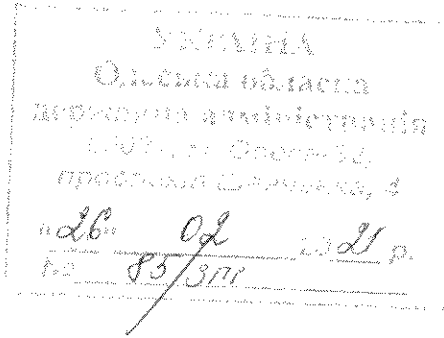 УКРАЇНА
Одеська обласна
державна адміністрація
м. Одеса
проспект Шевченка, 4
"26" 02 2021 р.
№ 83/ЗПІ